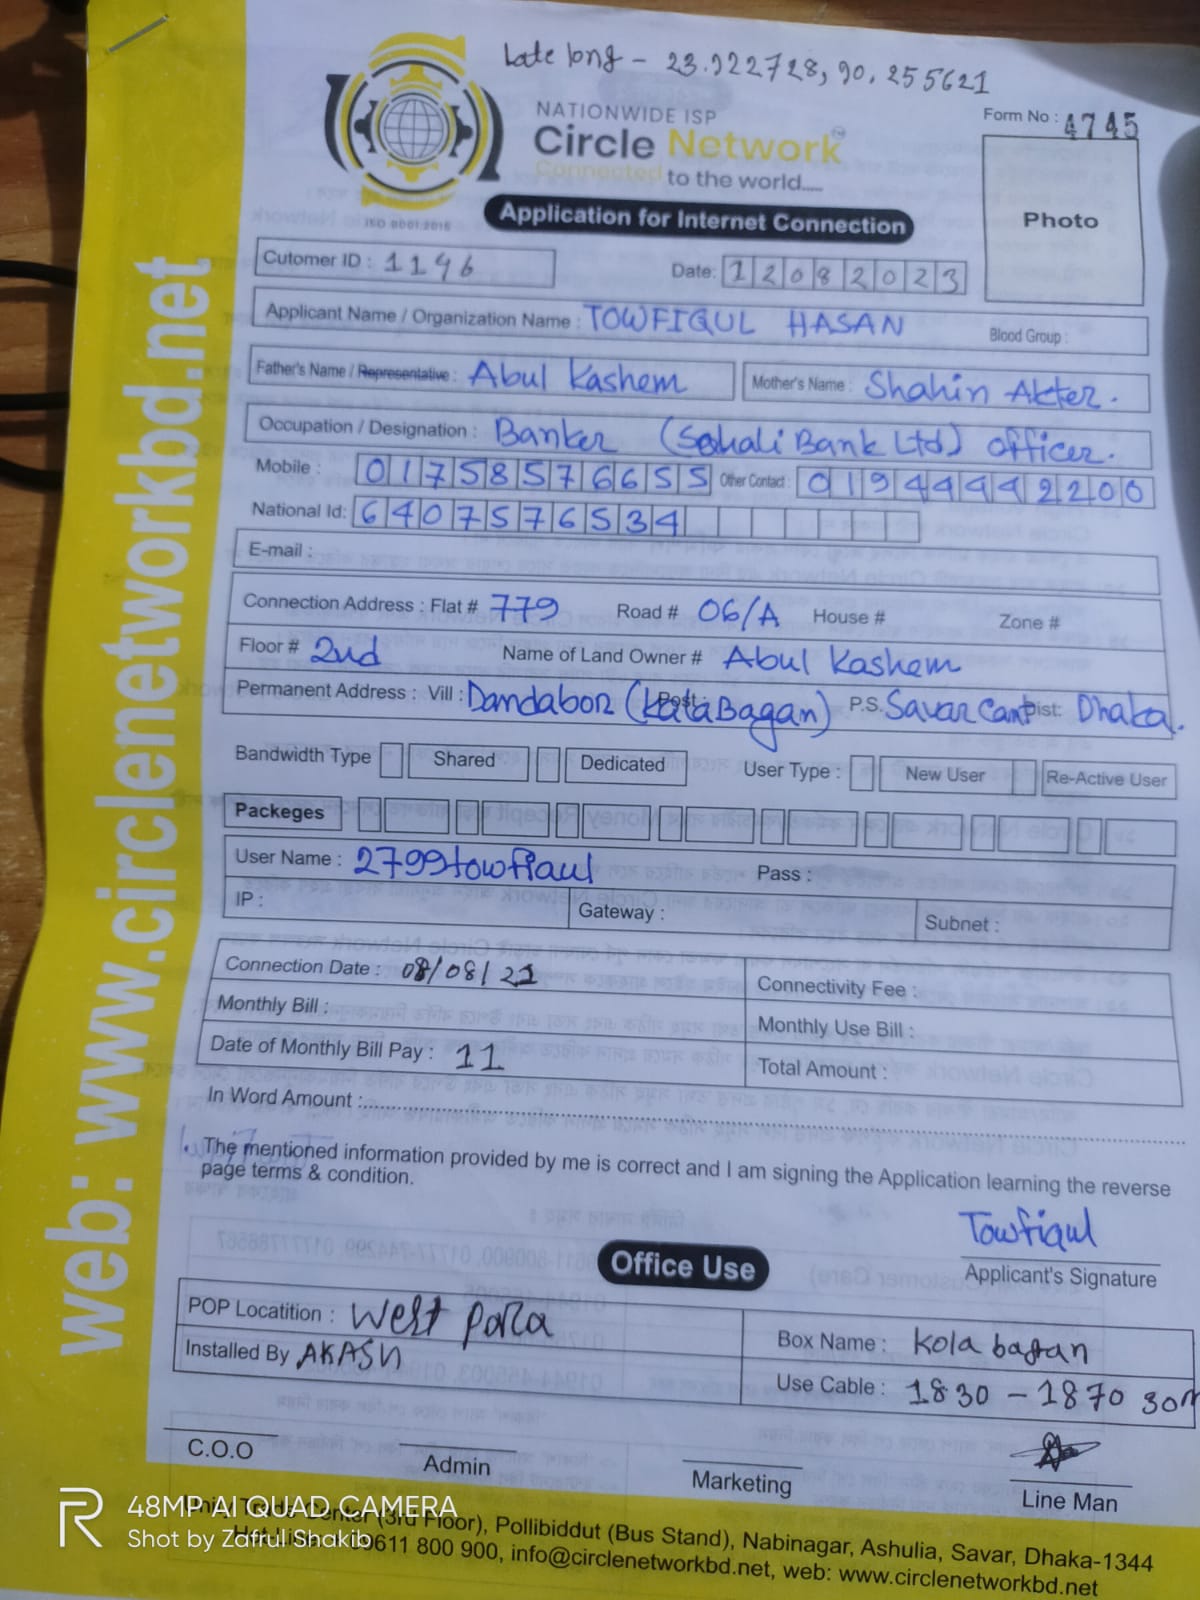 Late long - 23.922728, 90.255621
NATIONWIDE ISP
Circle Network
Connected to the world.....
ISO 9001:2015
Form No : 4745
Photo
Application for Internet Connection
Cutomer ID : 1196
Date: 12082023
Applicant Name / Organization Name : TOWFIQUL HASAN Blood Group :
Father's Name / Representative : Abul Kashem Mother's Name : Shahin Akter.
Occupation / Designation : Banker (Sohali Bank Ltd) officer.
Mobile : 01758576655 Other Contact : 01944442200
National Id: 6407576534
E-mail :
Connection Address : Flat # 779 Road # 06/A House # Zone #
Floor # 2nd Name of Land Owner # Abul Kashem
Permanent Address : Vill : Dandabor (KalaBagan) Post : P.S. Savar Cant Dist: Dhaka.
Bandwidth Type Shared Dedicated User Type : New User Re-Active User
Packeges
User Name : 2799towfiqul Pass :
IP : Gateway : Subnet :
Connection Date : 08/08/21 Connectivity Fee :
Monthly Bill : Monthly Use Bill :
Date of Monthly Bill Pay : 11 Total Amount :
In Word Amount :
The mentioned information provided by me is correct and I am signing the Application learning the reverse
page terms & condition.
Towfiqul
Applicant's Signature
Office Use
POP Locatition : West para Box Name : Kola bagan
Installed By AKASH Use Cable : 1830 - 1870 30m
C.O.O Admin Marketing Line Man
Trade Center (3rd Floor), Pollibiddut (Bus Stand), Nabinagar, Ashulia, Savar, Dhaka-1344
09611 800 900, info@circlenetworkbd.net, web: www.circlenetworkbd.net
web: www.circlenetworkbd.net
48MP AI QUAD CAMERA
Shot by Zafrul Shakib